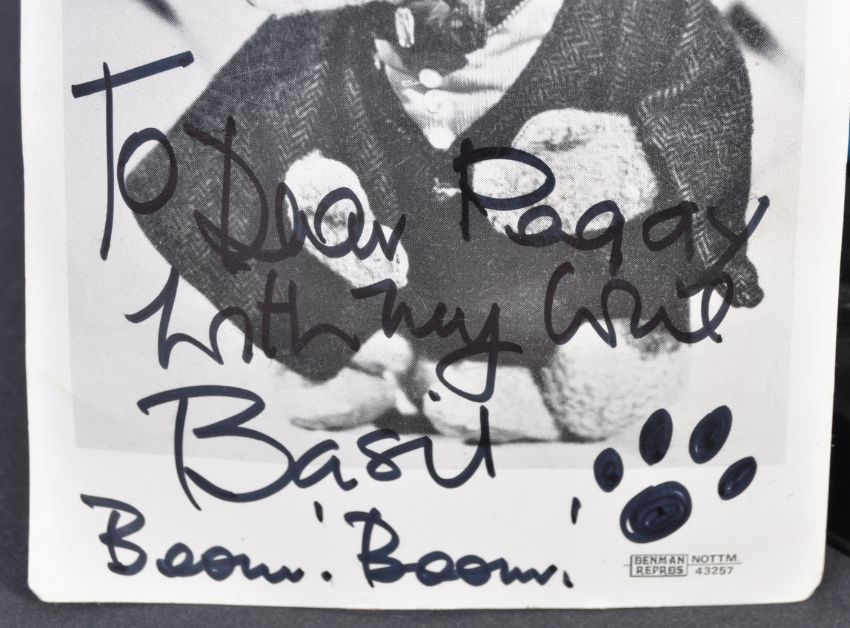 To Dear Peggy
With my Love
Basil
'Boom! Boom!'
DENMAN REPROS NOTTM. 43257